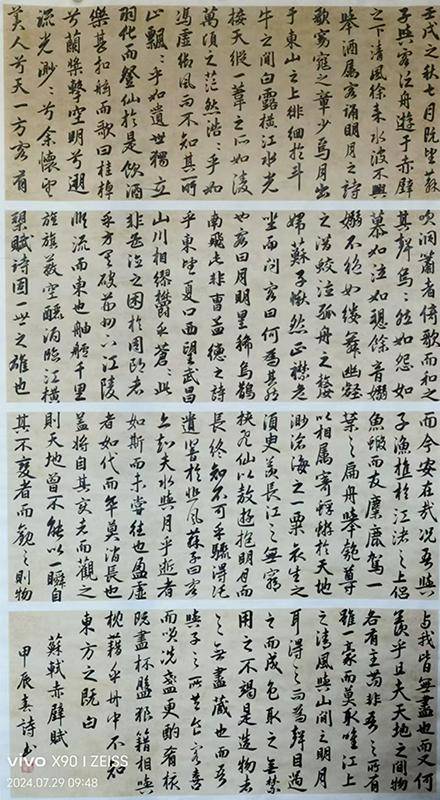 壬戌之秋七月既望蘇
子與客泛舟遊于赤壁
之下清風徐來水波不興
舉酒属客誦明月之詩
歌窈窕之章少焉月出
于東山之上徘徊於斗
牛之間白露橫江水光
接天縱一葦之所如凌
萬頃之茫然浩〻乎如
馮虛御風而不知其所
止飄〻乎如遺世獨立
羽化而登仙於是飲酒
樂甚扣舷而歌曰桂棹
兮蘭槳擊空明兮遡
流光渺〻兮余懷望
美人兮天一方客有
吹洞簫者倚歌而和之
其聲嗚〻然如怨如
慕如泣如訴餘音嫋
嫋不絕如縷舞幽壑
之潛蛟泣孤舟之嫠
婦蘇子愀然正襟危
坐而問客曰何為其然
也客曰月明星稀烏鵲
南飛此非曹孟德之詩
乎東望夏口西望武昌
山川相繆鬱乎蒼〻此
非孟德之困於周郎者
乎方其破荊州下江陵
順流而東也舳艫千里
旌旗蔽空釃酒臨江橫
槊賦詩固一世之雄也
而今安在哉況吾與
子漁樵於江渚之上侶
魚蝦而友麋鹿駕一
葉之扁舟舉匏尊
以相属寄蜉蝣於天地
渺滄海之一粟哀吾生之
須臾羨長江之無窮
挾飛仙以遨遊抱明月而
長終知不可乎驟得託
遺響於悲風蘇子曰客
亦知夫水與月乎逝者
如斯而未嘗往也盈虛
者如代而卒莫消長也
蓋將自其變者而觀之
則天地曾不能以一瞬自
其不變者而觀之則物
与我皆無盡也而又何
羨乎且夫天地之間物
各有主苟非吾之所有
雖一毫而莫取唯江上
之清風與山間之明月
耳得之而為聲目遇
之而成色取之無禁
用之不竭是造物者
之無盡藏也而吾
與子之所共食客喜
而笑洗盞更酌肴核
既盡杯盤狼籍相與
枕藉乎舟中不知
東方之既白
蘇軾赤壁賦
甲辰春詩
vivo X90 | ZEISS
2024.07.29 09:48